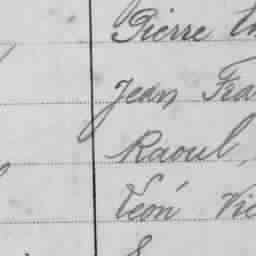 Pierre
Jean Fra
Raoul,
Léon Vic